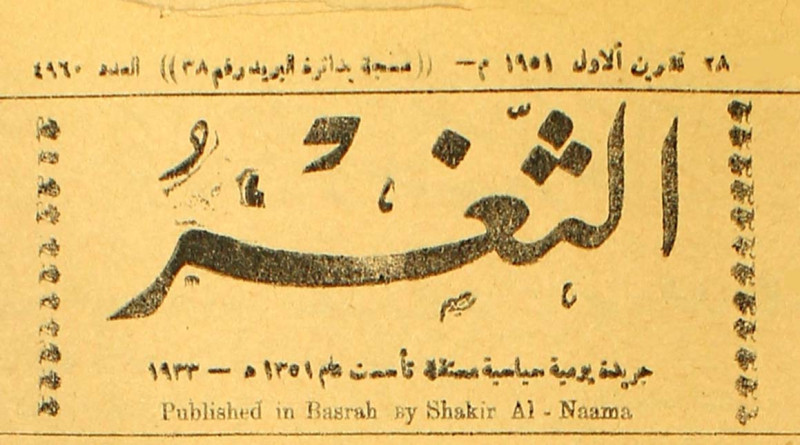 ٢٨ تشرين الاول ١٩٥١ م — ((مسجلة بدائرة البريد رقم ٣٨)) العدد ٤٩٦٠
الثَّغْرُ
جريدة يومية سياسية مستقلة تأسست عام ١٣٥١ هـ — ١٩٣٣
Published in Basrah by Shakir Al - Naama